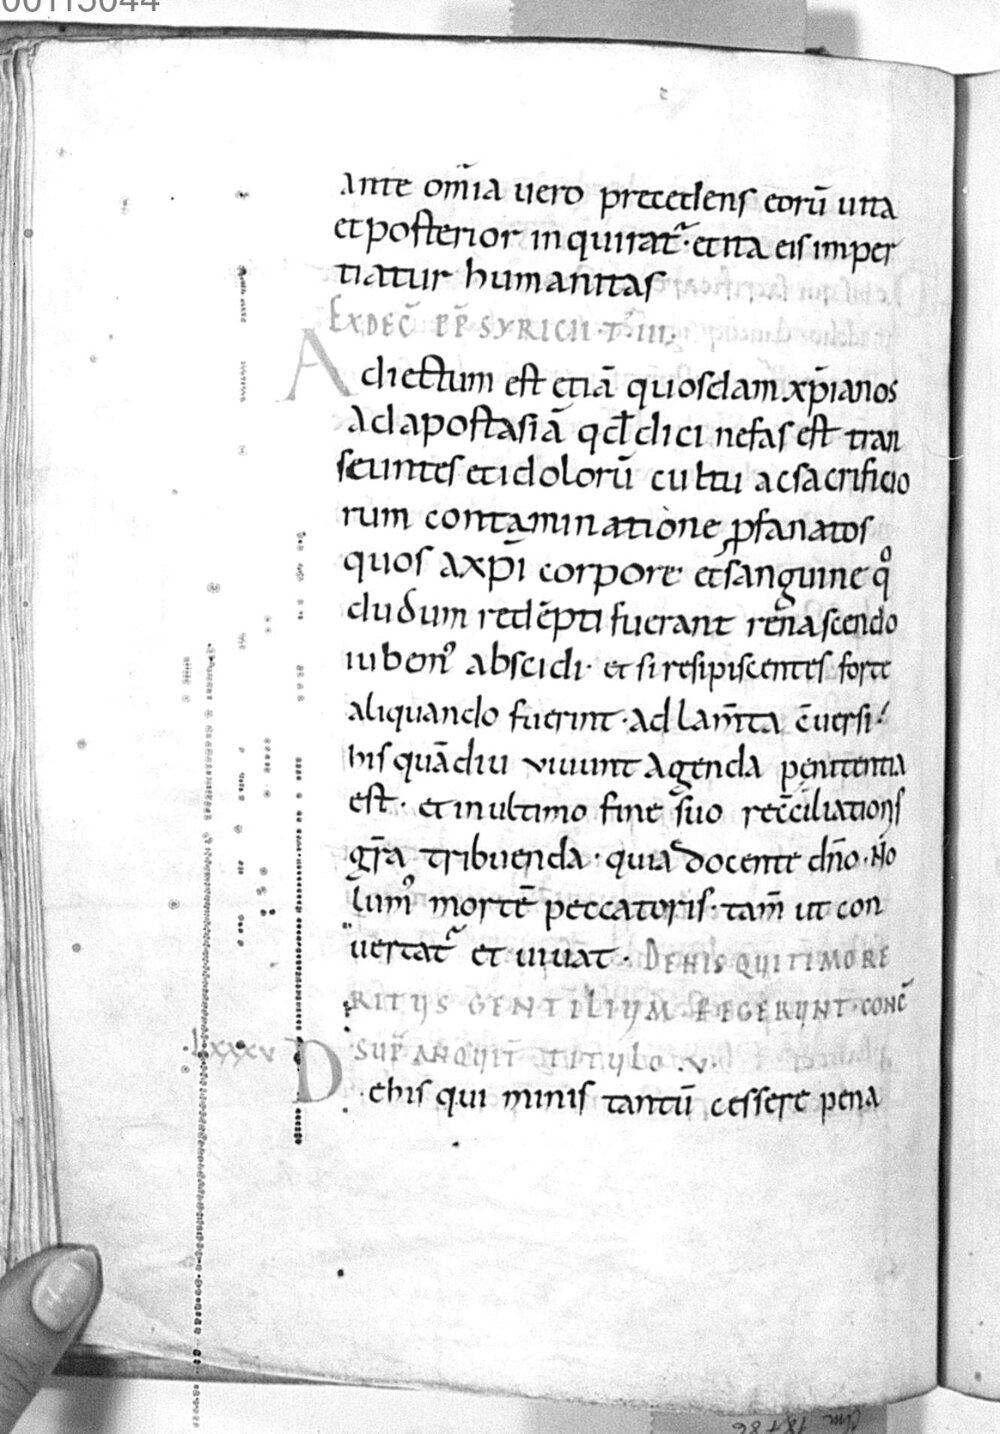 00113044
Ante om̄ia uero precedens eorū uita
et posterior inquirat᷑· et ita eis imper
tiatur humanitas
EX DEC̄ P̄P̄ SYRICII · T̄ · III;
Adiectum est etiā quosdam xp̄ianos
ad apostasiā qd̄ dici nefas est tran
seuntes et idolorū cultu ac sacrificio
rum contaminatione ꝓfanatos
quos a xp̄i corpore et sanguine qͦ
dudum redēpti fuerant renascendo
iubem᷒ abscidi· et si resipiscentes forte
aliquando fuerint· ad lam̄ta c̄uersi·
his quādiu uiuunt agenda penitentia
est· et in ultimo fine suo rec̄ciliationis
gr̄a tribuenda· quia docente dn̄o· No
lum᷒ mortē peccatoris· tam̄ ut con
uertat᷑ et uiuat· DE HIS QUI TIMORE
RITUS GENTILIUM FEGERUNT· CONC̄
LXXXV SUP̄ ANQUIT̄ TITULO · V ·
De his qui minis tantū cessere pena
Clm 18t86